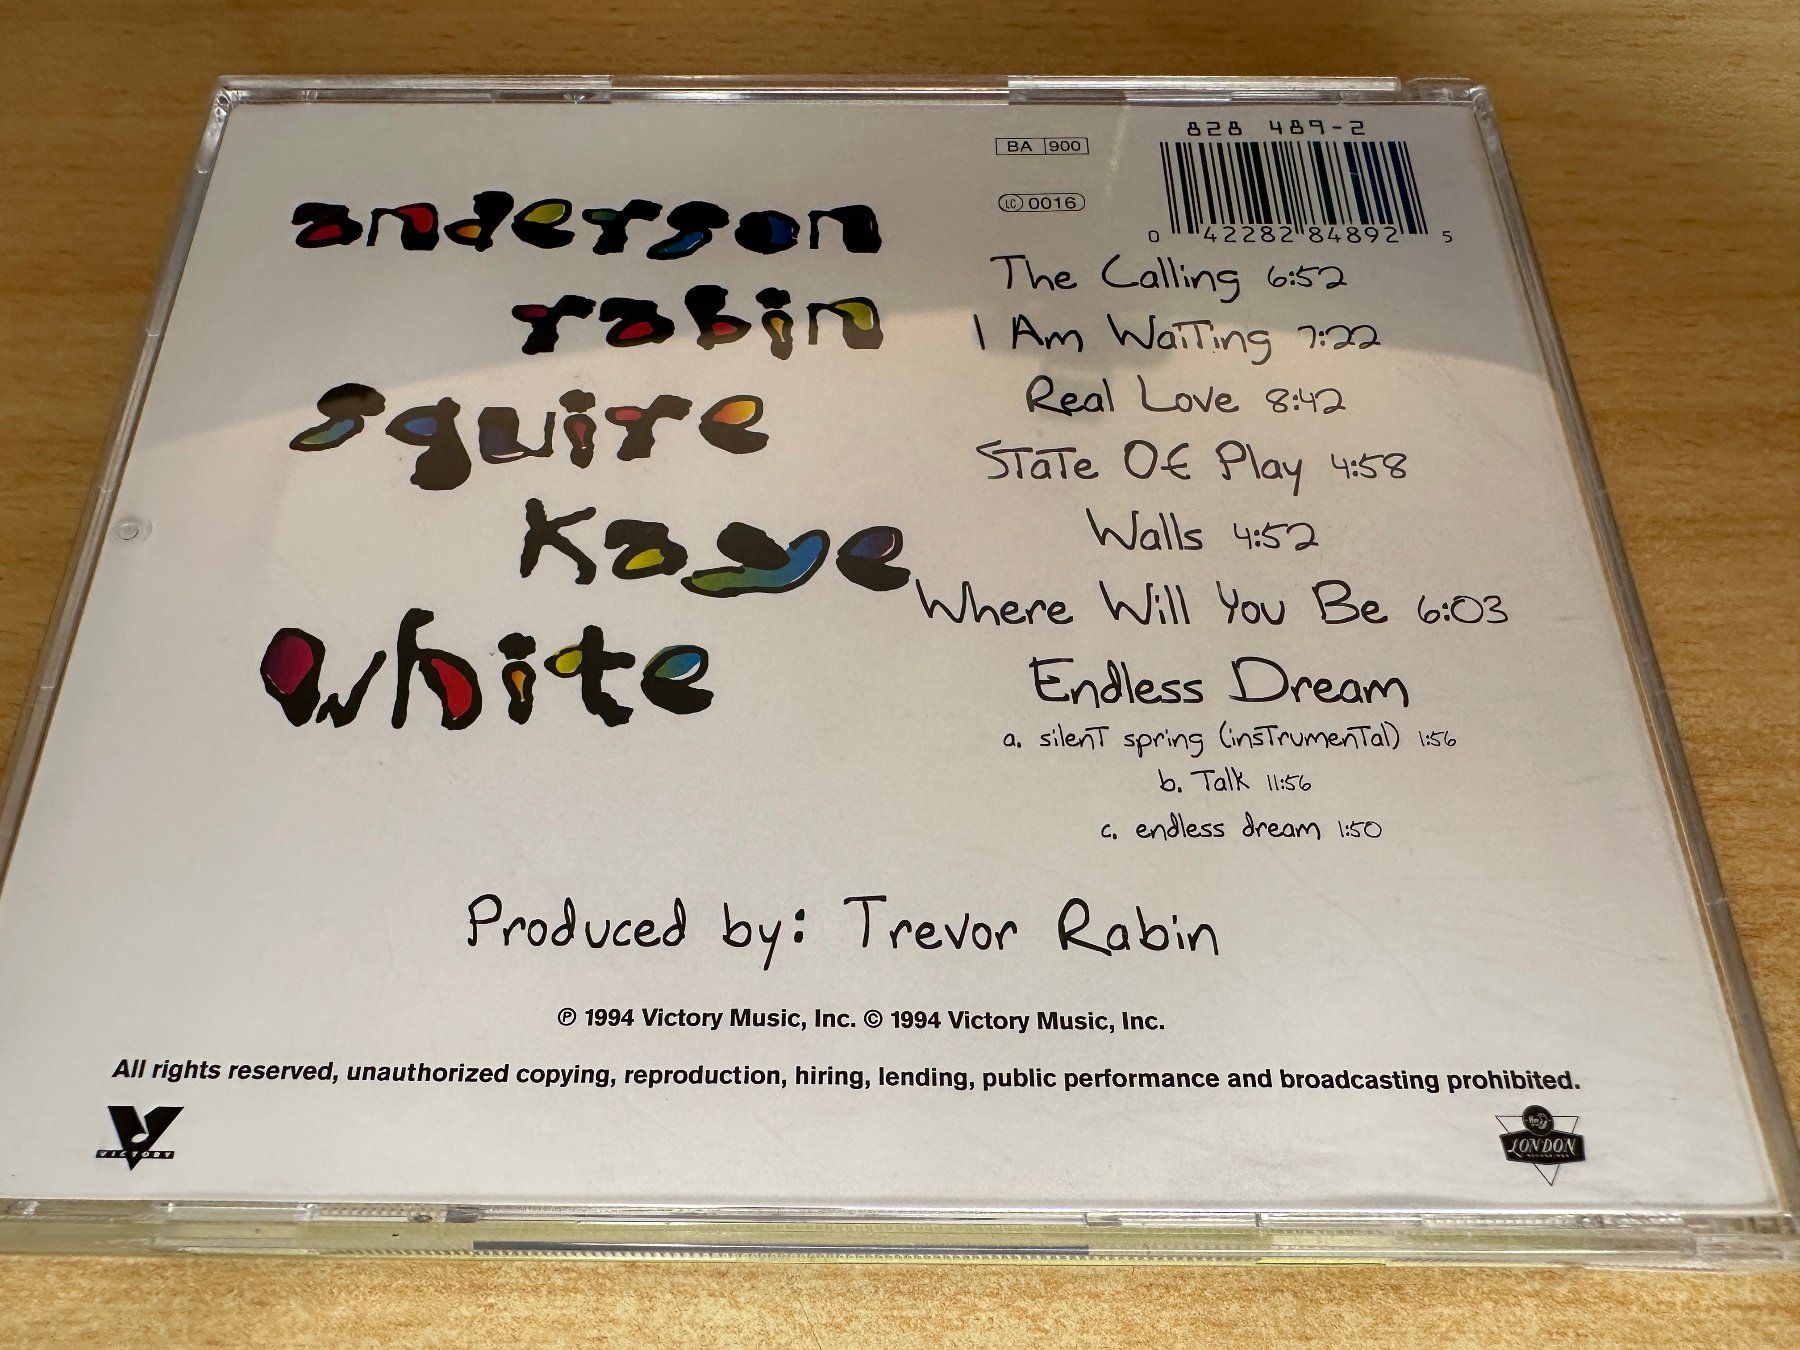 anderson
rabin
squire
kaye
white
BA 900
LC 0016
828 489-2
0 42282 84892 5
The Calling 6:52
I Am Waiting 7:22
Real Love 8:42
State Of Play 4:58
Walls 4:52
Where Will You Be 6:03
Endless Dream
a. silent spring (instrumental) 1:56
b. Talk 11:56
c. endless dream 1:50
Produced by: Trevor Rabin
℗ 1994 Victory Music, Inc. © 1994 Victory Music, Inc.
All rights reserved, unauthorized copying, reproduction, hiring, lending, public performance and broadcasting prohibited.
VICTORY
LONDON